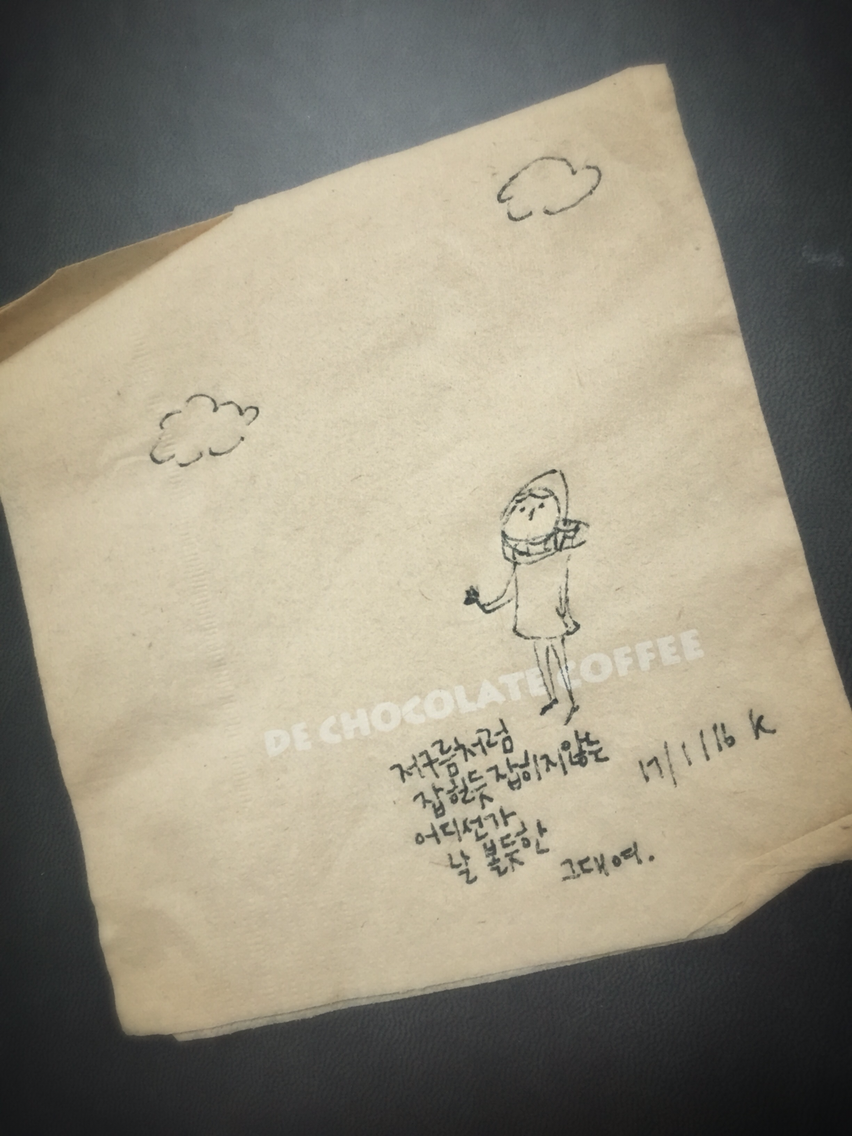 DE CHOCOLATE COFFEE
저구름처럼
잡힐듯 잡히지않는
어디선가
날 볼듯한
그대여.
17/1/16 K